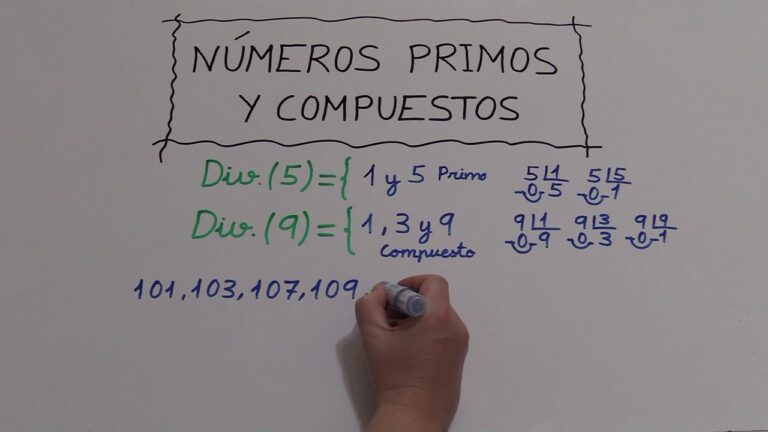 NÚMEROS PRIMOS
Y COMPUESTOS
Div. (5) = { 1 y 5 Primo 5 1 5 5
0 5 0 1
Div. (9) = { 1, 3 y 9 9 1 9 3 9 9
Compuesto 0 9 0 3 0 1
101, 103, 107, 109